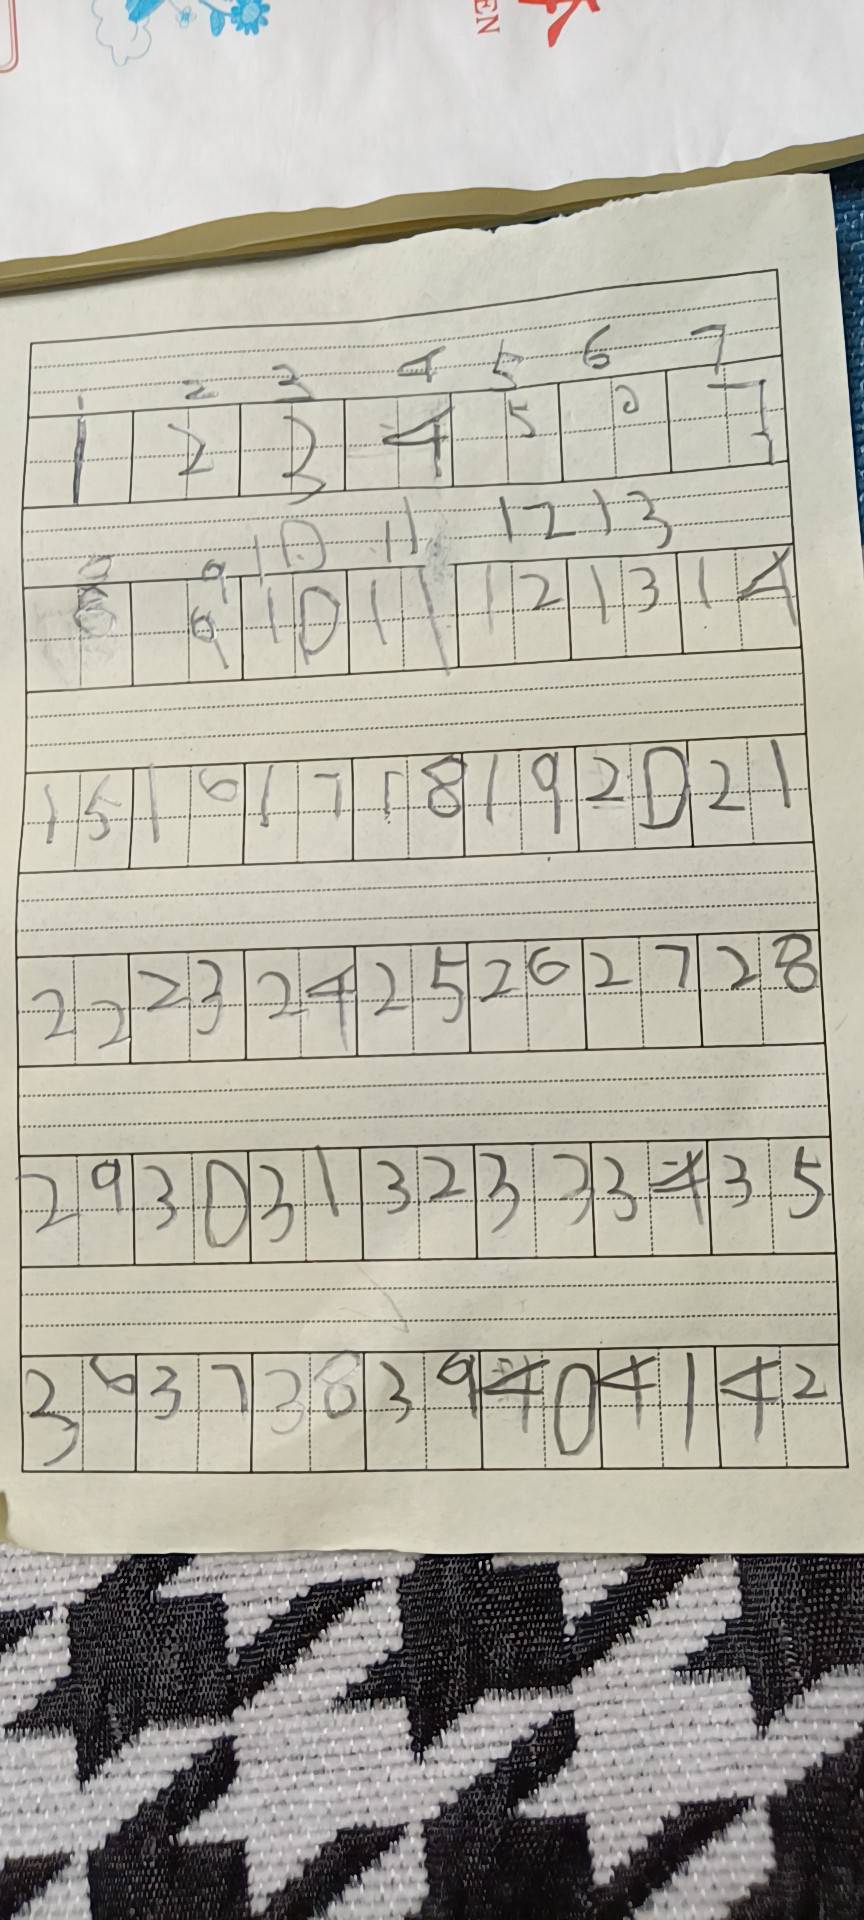 EN
1 2 3 4 5 6 7
1 2 3 4 5 6 7
8 9 10 11 12 13
8 9 10 11 12 13 14
15 16 17 18 19 20 21
22 23 24 25 26 27 28
29 30 31 32 33 34 35
36 37 38 39 40 41 42